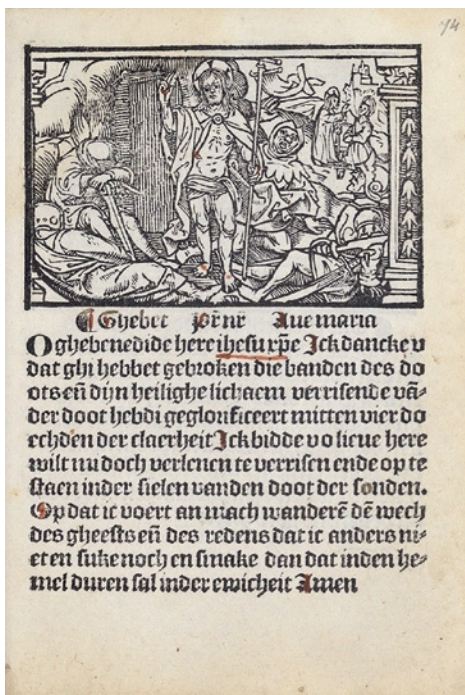 74
¶ Ghebet Pr̄nr Aue maria
O ghebenedide here ihesu xp̄e Ick dancke v
dat ghi hebbet gebroken die banden des do
ots eñ dijn heilighe lichaem verrisende vā⸗
der doot hebdi geglorificeert mitten vier do
echden der claerheit Ick bidde v o lieue here
wilt nu doch verlenen te verrisen ende op te
staen inder sielen vanden doot der sonden.
Op dat ic voert an mach wanderē dē wech
des gheests eñ des redens dat ic anders ni⸗
et en suke noch en smake dan dat inden he⸗
mel duren sal inder ewicheit Amen